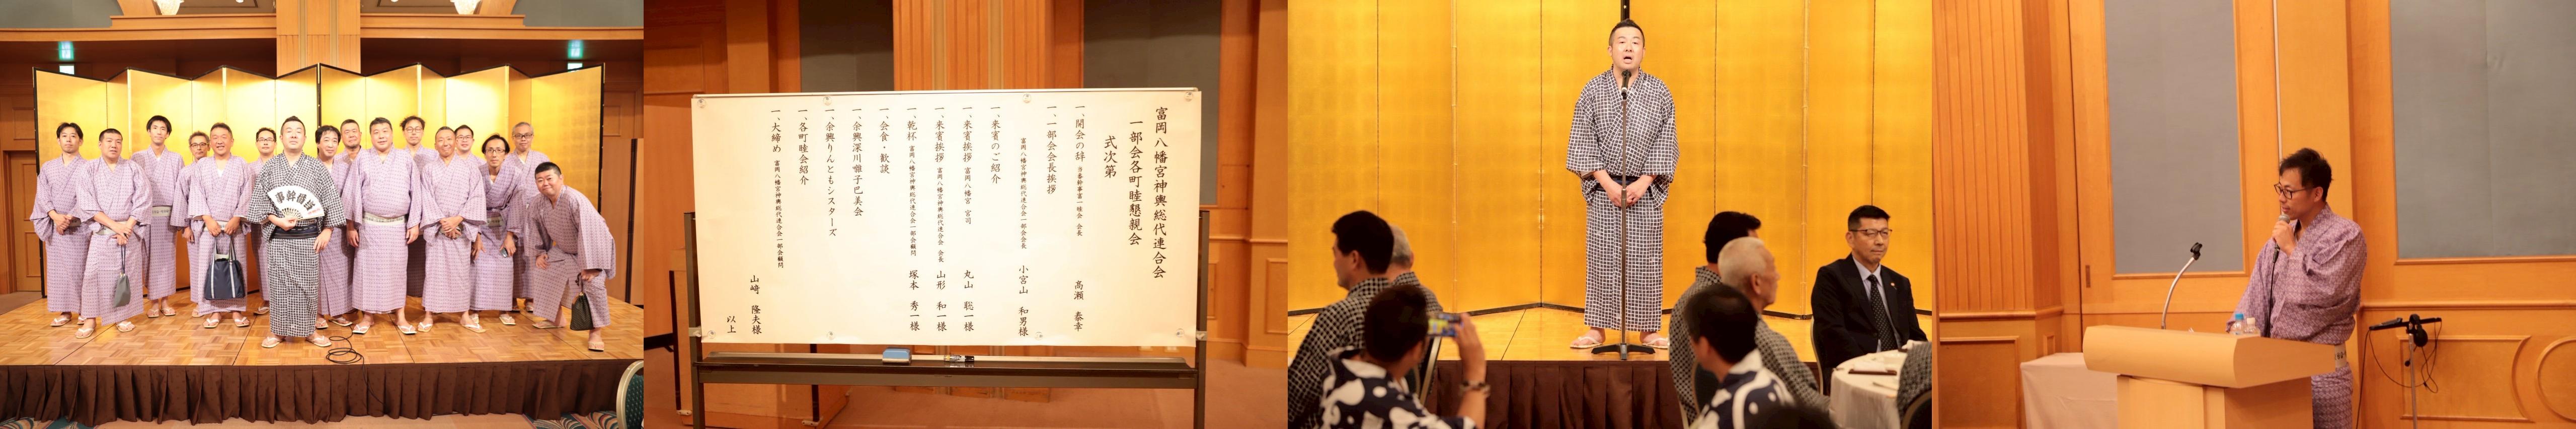 富岡八幡宮神輿総代連合会
一部会各町睦懇親会
式次第
一、開会の辞 当番幹事富一睦会 会長 高瀬 泰幸
一、一部会会長挨拶
富岡八幡宮神輿総代連合会一部会会長 小宮山 和男様
一、来賓のご紹介
一、来賓挨拶 富岡八幡宮 宮司 丸山 聡一様
一、来賓挨拶 富岡八幡宮神輿総代連合会 会長 山形 和一様
一、乾杯 富岡八幡宮神輿総代連合会一部会顧問 塚本 秀一様
一、会食・歓談
一、余興深川囃子巴美会
一、余興りんともシスターズ
一、各町睦会紹介
一、大締め 富岡八幡宮神輿総代連合会一部会顧問
山﨑 隆夫様
以上